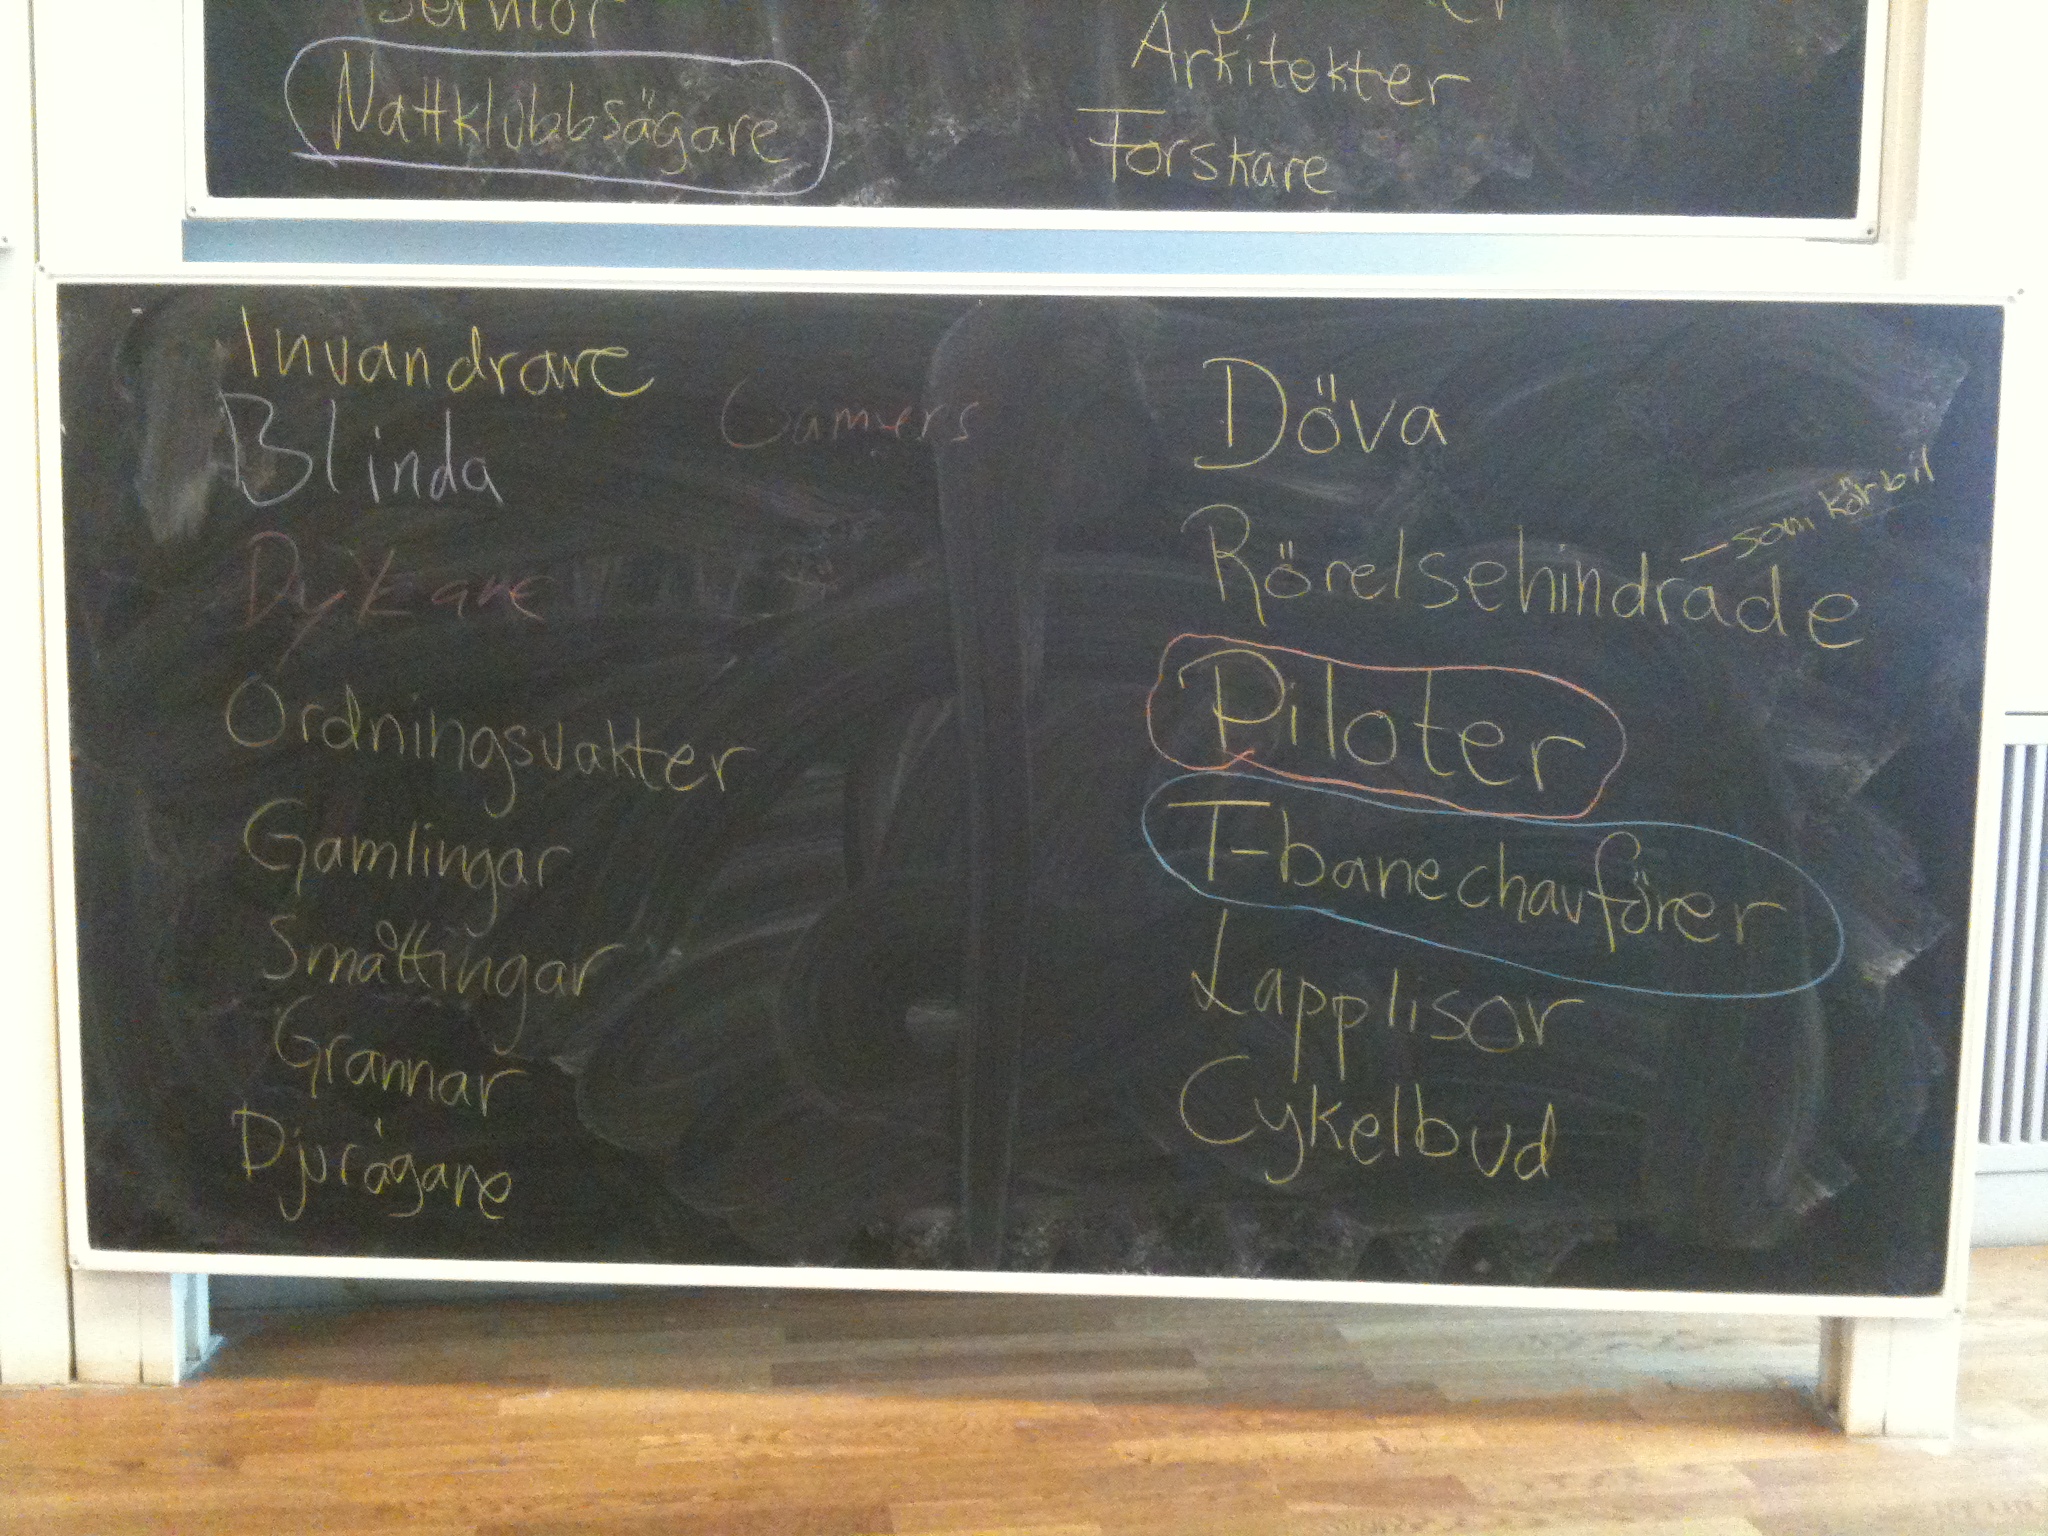 Nattklubbsägare
Arkitekter
Forskare
Invandrare
Blinda
Gamers
Dykare
Ordningsvakter
Gamlingar
Småttingar
Grannar
Djurägare
Döva
Rörelsehindrade
– som kör bil
Piloter
T-banechaufförer
Lapplisor
Cykelbud